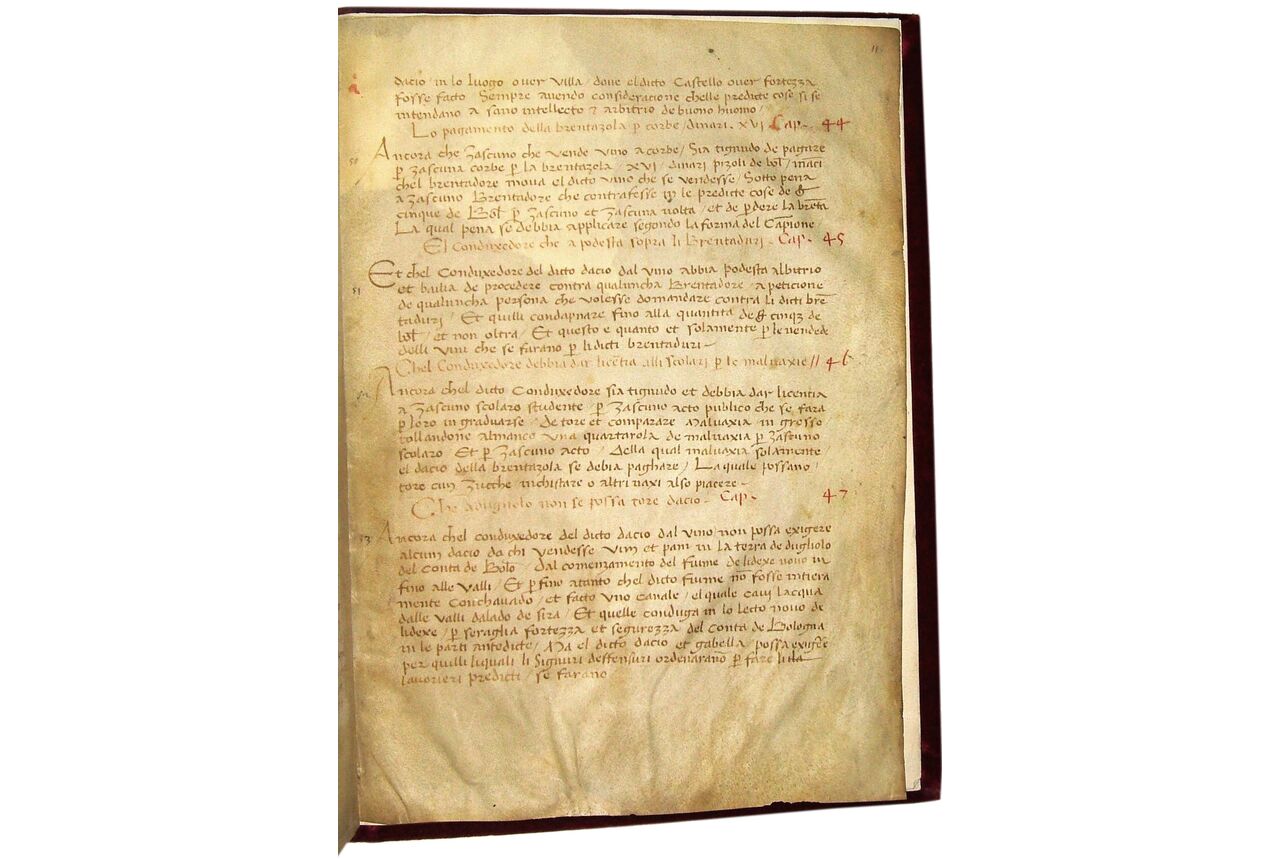 11
dacio in lo luogo over villa / dove el dicto Castello over fortezza
fosse facto Sempre avendo consideracione chelle predicte cose si se
intendano a sano intellecto et arbitrio de buono huomo /
Lo pagamento della brentazola p corbe / dinari . xvi Cap. 44
50 Ancora che Zascuno che vende vino a corbe / Sia tignudo de pagare
p zascuna corbe p la brentazola / xvi / dinari pizoli de bol / inaci
chel brentadore mova el dicto vino che se vendesse / Sotto pena
a zascuno Brentadore che contrafesse in le predicte cose de
cinque de Bol p zascuno et zascuna volta / et de pdere la breta
La qual pena se debbia applicare segondo la forma del Capione
El Conduxedore che a podesta sopra li Brentaduri . Cap. 45
51 Et chel Conduxedore del dicto dacio dal vino abbia podesta albitrio
et bailia de procedere contra qualuncha Brentadore / a peticione
de qualuncha persona che volesse domandare contra li dicti bre
taduri / Et quilli condapnare fino alla quantita de cinq3 de
bol / et non oltra / Et questo e quanto et solamente p le vendede
delli vini che se farano p li dicti brentaduri
Chel Conduxedore debbia dar licetia alli scolari p le malvaxie // 46
Ancora chel dicto Conduxedore sia tignudo et debbia dar licentia
a Zascuno scolaro studente / p zascuno acto publico che se fara
p loro in graduarse / de tore et comparare Malvaxia in grosso
tollandone almanco una quartarola de malvaxia p zascuno
scolaro / Et p zascuno acto / Della qual malvaxia solamente /
el dacio della brentazola se debia paghare / La quale possano /
tore cun zucche inchistare o altri vaxi a lso piacere
Che a dugnolo non se possa tore dacio . Cap. 47
53 Ancora chel conduxedore del dicto dacio dal vino / non possa exigere
alcun dacio da chi vendesse vini et pani in la terra de dugliolo
del Conta de Bolo / Dal comenzamento del fiume de lidexe novo in
fino alle valli / Et p fino a tanto chel dicto fiume no fosse intiera
mente Conchavado / et facto uno canale / el quale cavi lacqua
dalle valli dalado de sira / Et quelle conduga in lo lecto novo de
lidexe / p seraglia fortezza et segurezza del Conta de Bologna
in le parti antedicte / Ma el dicto dacio et gabella / possa exigere
per quilli li quali li Signuri deffensuri ordenarano p fare li
lavorieri predicti / se farano